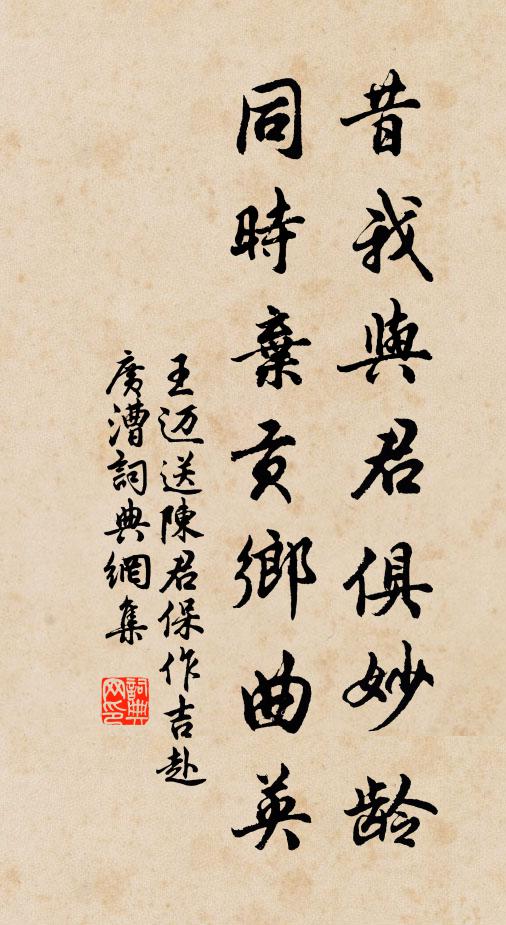 昔我與君俱妙龄
同時棄貢鄉曲英
王迈送陳君保作吉赴
廣漕詞典網集
詞典网印